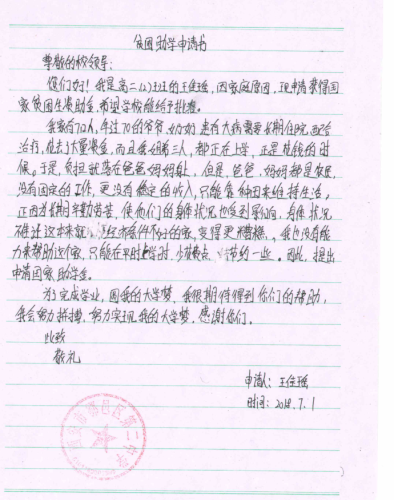 贫困助学申请书
尊敬的校领导:
您们好!我是高二(2)班的王佳瑶,因家庭原因,现申请获得国
家贫困生奖助金,希望学校能给予批准。
我家有7口人,年过70的爷爷、奶奶患有大病需要长期住院,配合
治疗,花去了大量资金,而且我姐弟三人,都正在上学,正是花钱的时
候。于是,负担就落在爸爸妈妈身上,但是,爸爸、妈妈都是农民,
没有固定的工作,更没有稳定的收入,只能靠种田来维持生活。
正因为长期辛勤劳苦,使他们的身体状况也受到影响,身体状况
不好的家,变得更糟糕,我也没有能
力来帮助这个家,只能在平时上学时,少花费点,节约一些。因此,提出
申请国家助学金。
为了完成学业,圆我的大学梦,我很期待得到你们的帮助,
我会努力拼搏,努力实现我的大学梦,感谢你们。
此致
敬礼
申请人:王佳瑶
时间:2018.7.1